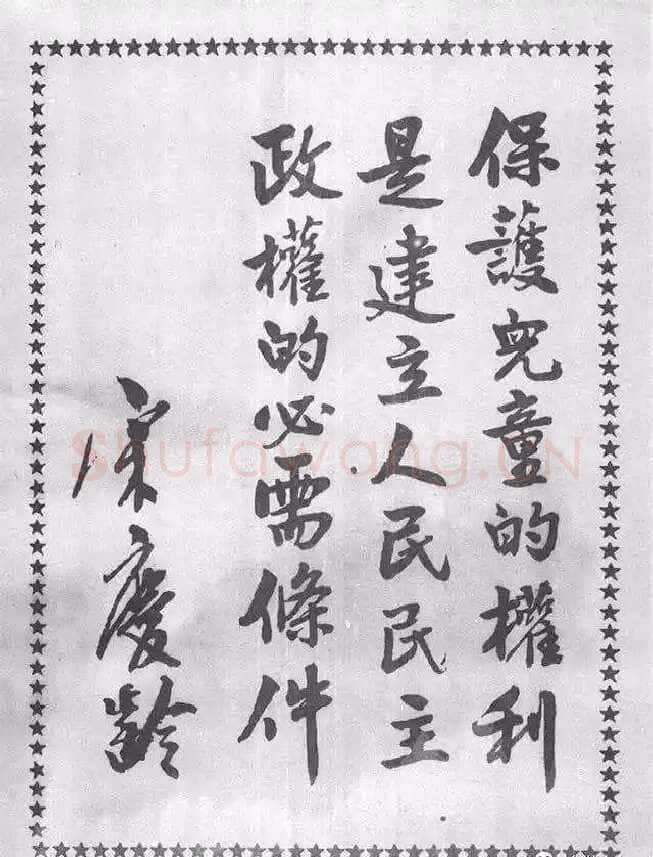 保護兒童的權利
是建立人民民主
政權的必需條件
宋慶齡
Shufawang.CN